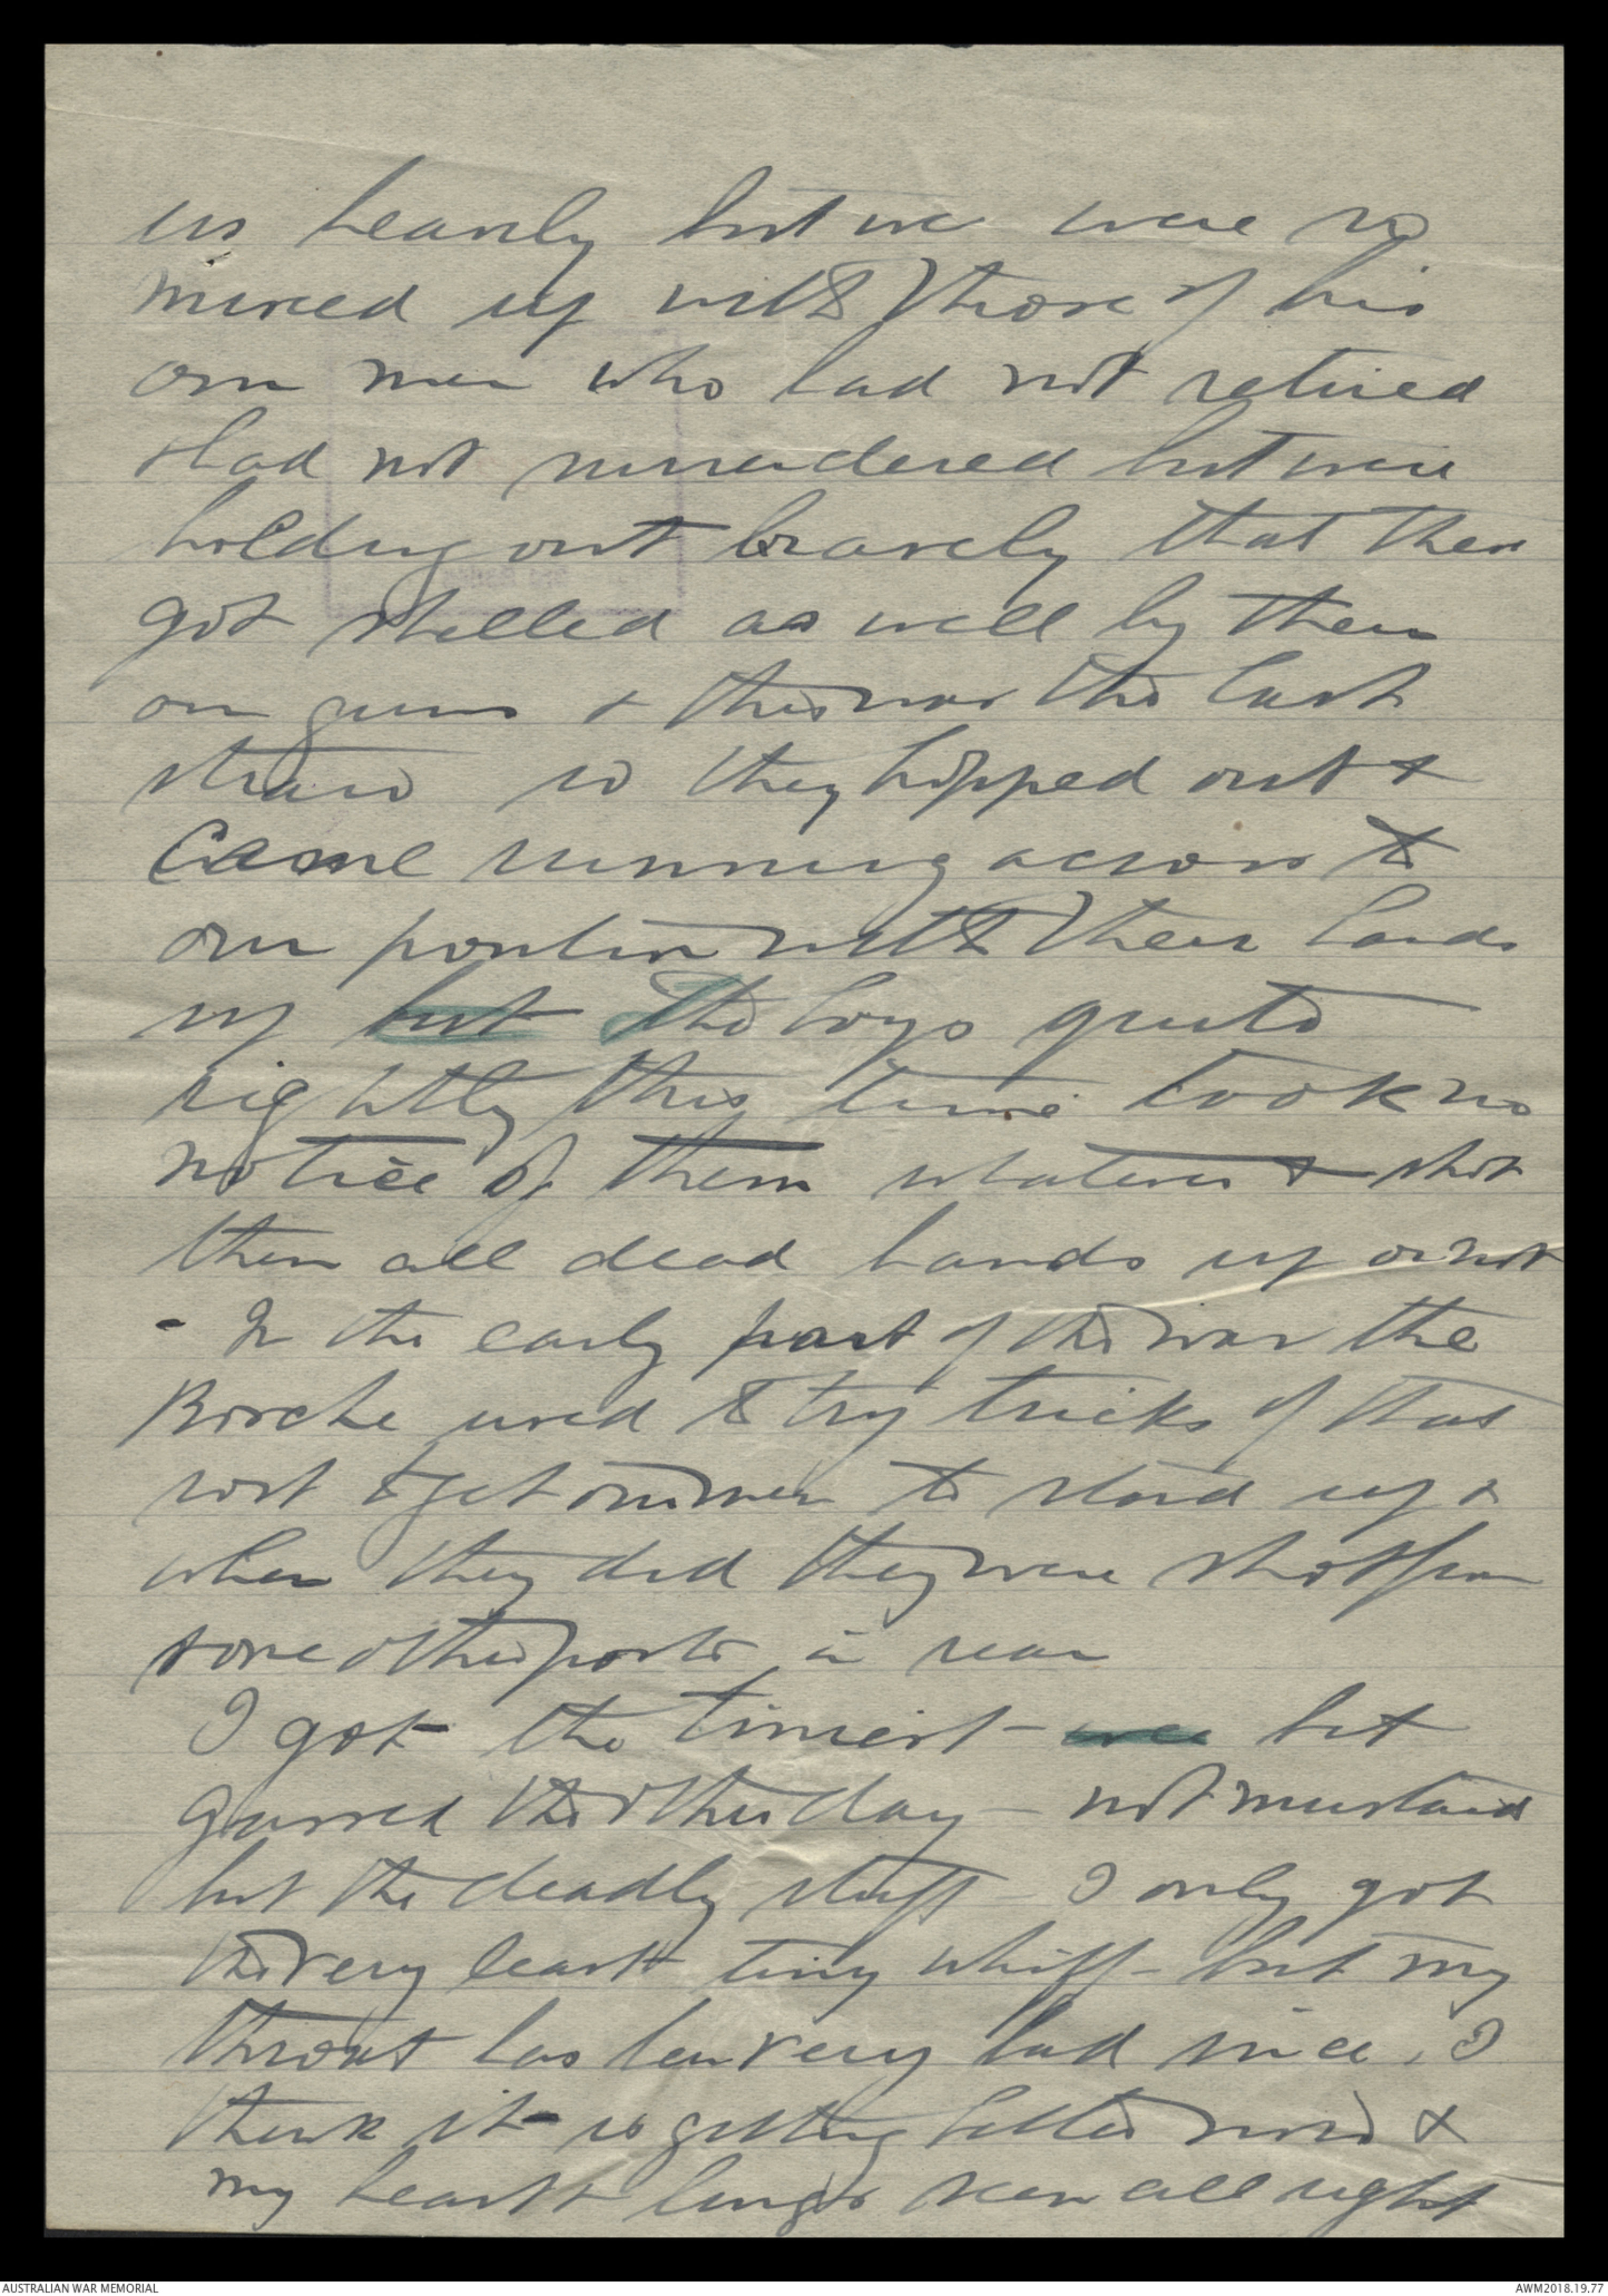 us heavily but we were so
mixed up with those of his
own men who had not retired
& had not surrendered but were
holding out bravely that these
got shelled as well by their
own guns & this was the last
straw so they hopped out &
Came running across to
our position with their hands
up but The boys quite
rightly this time took no
notice of them whatever & shot
them all dead hands up or not
- In the early part of the war the
Bosche used to try tricks of that
sort & get our men to stand up &
when they did they were shot from
some other posts in rear
I got the tiniest wee bit
gassed the other day - not mustard
but the deadly stuff - I only got
the very least tiny whiff - but my
throat has been very bad since, I
think it is getting better now &
my heart & lungs seem all right
AUSTRALIAN WAR MEMORIAL
AWM2018.19.77